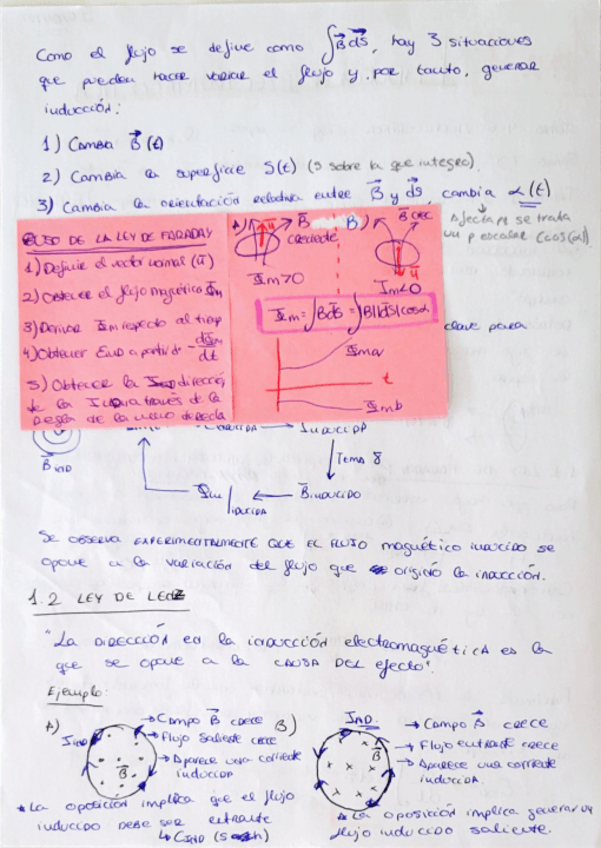 Como el flujo se define como ∫B⃗ds⃗, hay 3 situaciones
que pueden hacer variar el flujo y, por tanto, generar
inducción:
1) Cambia B⃗(t)
2) Cambia la superficie S(t) (S sobre la que integro)
3) Cambia la orientación relativa entre B⃗ y ds⃗, cambia α(t)
Afecta pq se trata
un p escalar (cos(α)).
USO DE LA LEY DE FARADAY
1) Definir el vector normal (u⃗)
2) Obtener el flujo magnético Φm
3) Derivar Φm respecto al tiemp
4) Obtener εIND a partir de -dΦm/dt
5) Obtener la dirección
de la IIND a través de la
regla de la mano derecha
A) u⃗ B⃗
creciente
Φm>0
B) B⃗ crec.
u⃗
Φm<0
Φm = ∫B⃗ds⃗ = ∫|B||ds⃗|cosα
Φma
t
Φmb
clave para
B⃗IND
INDUCIDA → IINDUCIDA
Tema 8
Φm/INDUCIDA ← B⃗INDUCIDO
Se observa EXPERIMENTALMENTE QUE EL FLUJO magnético inducido se
opone a la variación del flujo que originó la inducción.
1.2 LEY DE LENZ
"La DIRECCIÓN en la inducción electromagnéticA es la
que se opone a la CAUSA DEL efecto".
Ejemplo:
A) IIND
B⃗
→ Campo B⃗ crece
→ Flujo saliente crece
→ Aparece una corriente
inducida
* La oposición implica que el flujo
inducido debe ser entrante
↳ CIND
B) IIND.
B⃗
→ Campo B⃗ crece
→ Flujo entrante crece
→ Aparece una corriente
inducida.
* La oposición implica generar un
flujo inducido saliente.